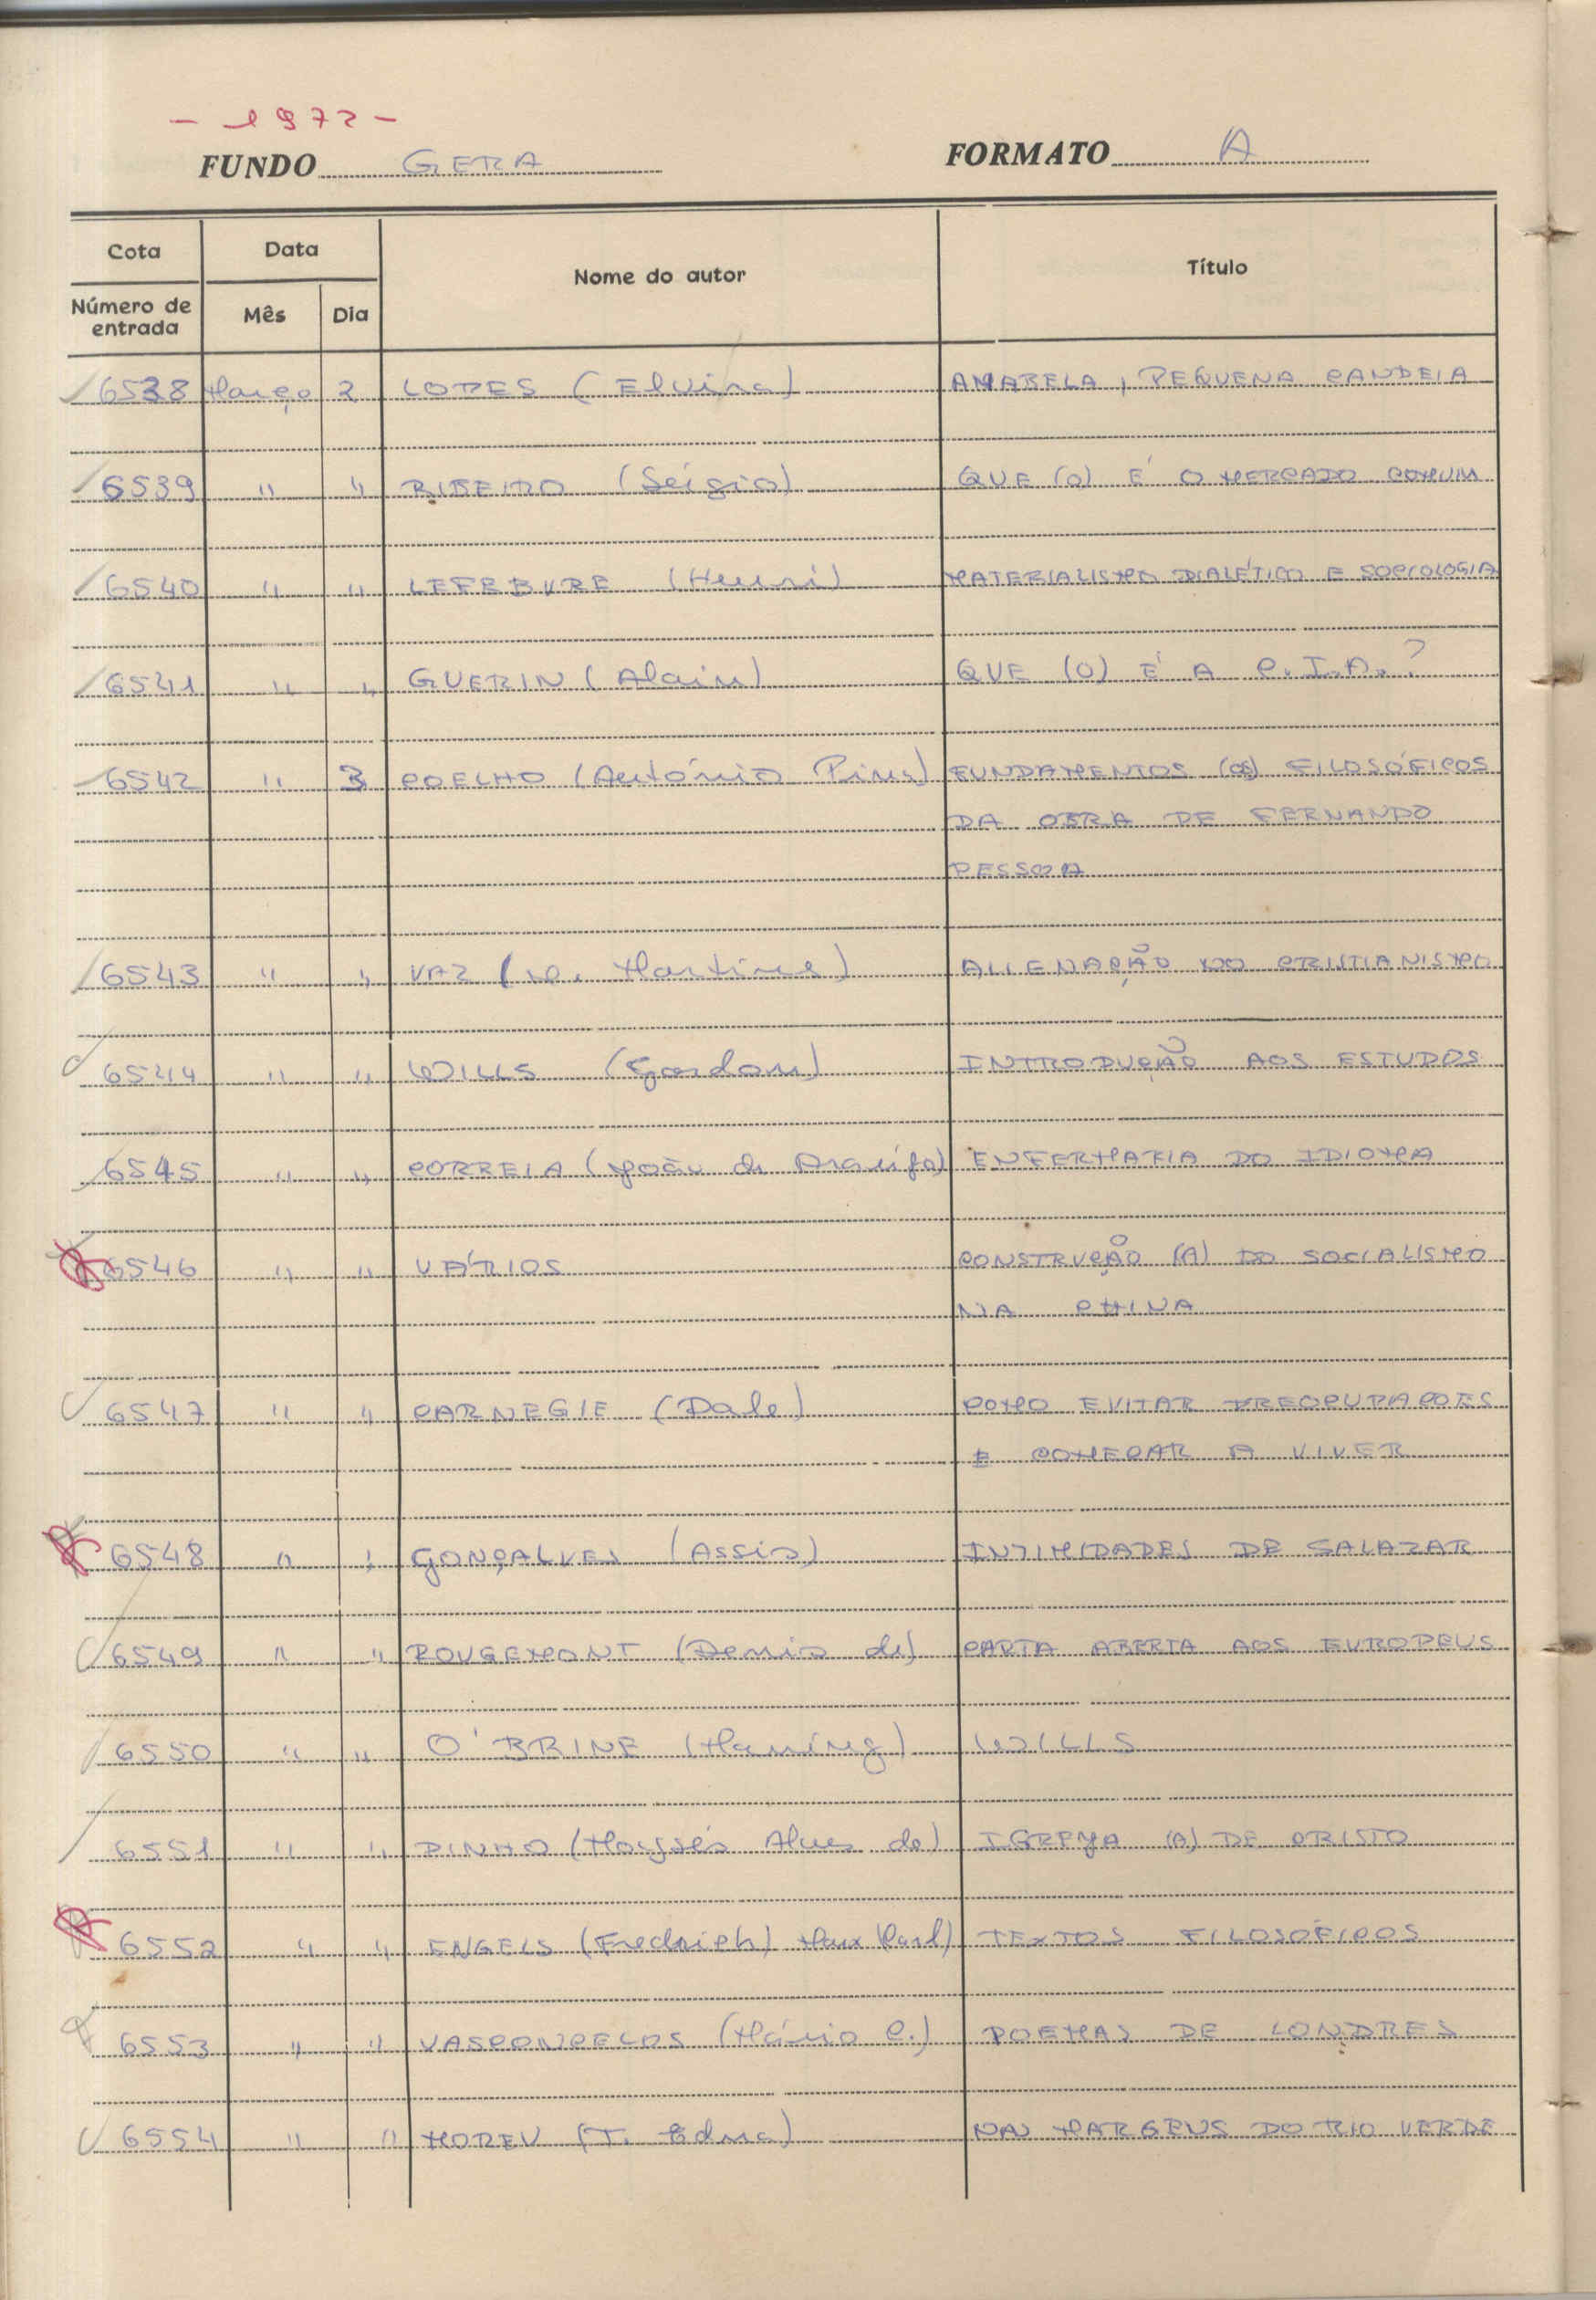 - 1972 -
FUNDO GERA FORMATO A
Cota Data Nome do autor Título
Número de entrada Mês Dia
6538 Março 2 LOPES (Elvira) ANABELA, PEQUENA CANDEIA
6539 " " RIBEIRO (Sérgio) QUE (O) É O MERCADO COMUM
6540 " " LEFEBVRE (Henri) MATERIALISMO DIALÉTICO E SOCIOLOGIA
6541 " " GUERIN (Alain) QUE (O) É A C.I.A.?
6542 " 3 COELHO (António Pina) FUNDAMENTOS (OS) FILOSÓFICOS
DA OBRA DE FERNANDO
PESSOA
6543 " " VAZ ( Martins) ALIENAÇÃO DO CRISTIANISMO
6544 " " WILLS (Gordon) INTRODUÇÃO AOS ESTUDOS
6545 " " CORREIA (João de Araújo) ENFERMARIA DO IDIOMA
6546 " " VÁRIOS CONSTRUÇÃO (A) DO SOCIALISMO
NA CHINA
6547 " " CARNEGIE (Dale) COMO EVITAR PREOCUPAÇÕES
E COMEÇAR A VIVER
6548 " " GONÇALVES (Assis) INTIMIDADES DE SALAZAR
6549 " " ROUGEMONT (Denis de) CARTA ABERTA AOS EUROPEUS
6550 " " O'BRINE (Maning) WILLS
6551 " " PINHO (Moysés Alves de) IGREJA (A) DE CRISTO
6552 " " ENGELS (Fredrich) Marx Karl) TEXTOS FILOSÓFICOS
6553 " " VASCONCELOS (Mário C.) POEMAS DE LONDRES
6554 " " MOREU (T. Edna) NAS MARGENS DO RIO VERDE